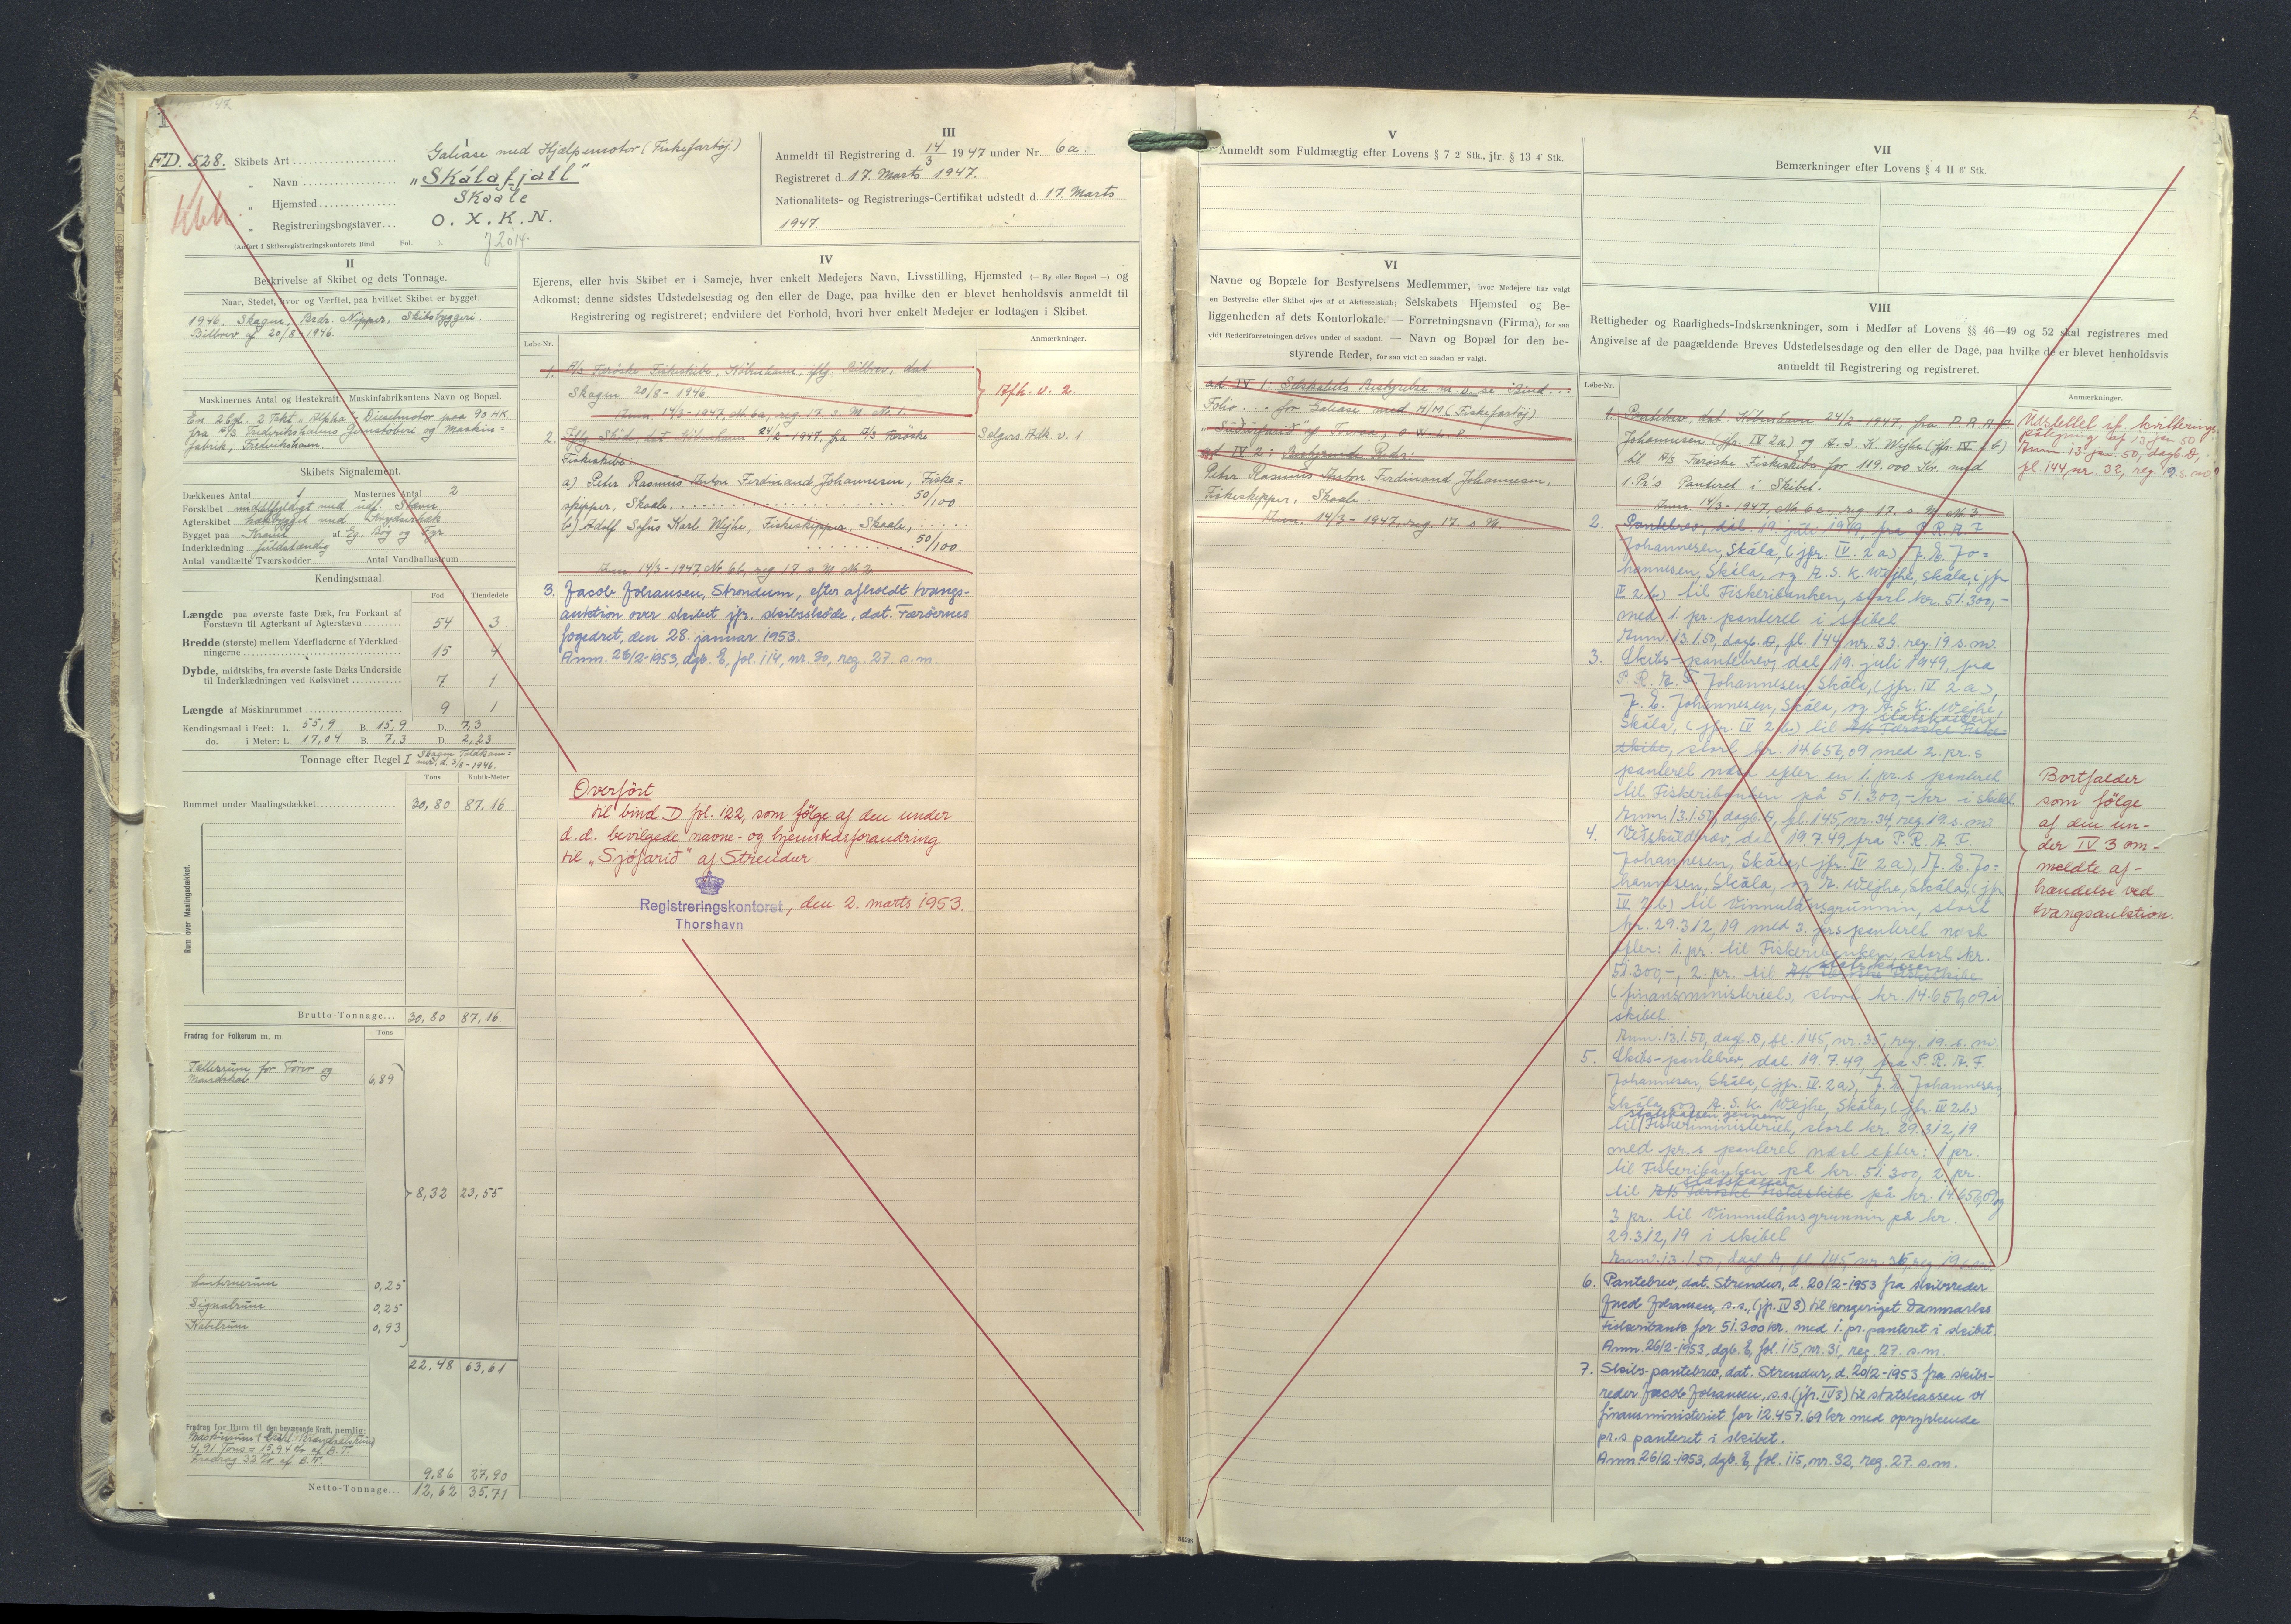 1
FD. 528.
I
Skibets Art Galease med Hjælpemotor (Fiskefartøj)
" Navn "Skálafjall"
" Hjemsted Skaale
" Registreringsbogstaver... O. X. K. N.
(Anført i Skibsregistreringskontorets Bind Fol. ).
II
Beskrivelse af Skibet og dets Tonnage.
Naar, Stedet, hvor og Værftet, paa hvilket Skibet er bygget.
1946, Skagen, Brdr. Nipper, Skibsbyggeri.
Bilbrev af 20/8 1946.
Maskinernes Antal og Hestekraft. Maskinfabrikantens Navn og Bopæl.
En 2 Cyl. 2 Takt "Alpha" Dieselmotor paa 90 HK.
fra A/S Frederikshavns Jernstøberi og Maskin=
fabrik, Frederikshavn.
Skibets Signalement.
Dækkenes Antal 1 Masternes Antal 2
Forskibet middelfyldigt med udf. Stævn
Agterskibet hækbygget med Krydserhæk
Bygget paa Kravel af Eg, Bøg og Fyr
Inderklædning fuldstændig
Antal vandtætte Tværskodder Antal Vandballastrum
Kendingsmaal.
Fod Tiendedele
Længde paa øverste faste Dæk, fra Forkant af
Forstævn til Agterkant af Agterstævn 54 3
Bredde (største) mellem Yderfladerne af Yderklæd-
ningerne 15 4
Dybde, midtskibs, fra øverste faste Dæks Underside
til Inderklædningen ved Kølsvinet 7. 1
Længde af Maskinrummet 9 1
Kendingsmaal i Feet: L. 55,9 B. 15,9 D. 7,3
do. i Meter: L. 17,04 B. 7,3 D. 2,23
Tonnage efter Regel I Skagen Toldkam=
mer, d. 3/8-1946.
Tons Kubik-Meter
Rummet under Maalingsdækket 30,80 87,16
Rum over Maalingsdækket.
Brutto-Tonnage... 30,80 87,16.
Fradrag for Folkerum m. m. Tons
Fællesrum for Fører og
Mandskab 6,89
8,32 23,55
Lanternerum 0,25
Signalrum 0,25
Kabelrum 0,93
22,48 63,61
Fradrag for Rum til den bevægende Kraft, nemlig:
4,91 Tons = 15,94 % af B.T.
Fradrag 32 % af B.T.
9,86 27,90
Netto-Tonnage... 12,62 35,71
III
Anmeldt til Registrering d. 14/3 1947 under Nr. 6a.
Registreret d. 17. Marts 1947.
Nationalitets- og Registrerings-Certifikat udstedt d. 17. Marts
1947.
IV
Ejerens, eller hvis Skibet er i Sameje, hver enkelt Medejers Navn, Livsstilling, Hjemsted (— By eller Bopæl —) og
Adkomst; denne sidstes Udstedelsesdag og den eller de Dage, paa hvilke den er blevet henholdsvis anmeldt til
Registrering og registreret; endvidere det Forhold, hvori hver enkelt Medejer er lodtagen i Skibet.
Løbe-Nr. Anmærkninger.
1. A/S Færøske Fiskeskibe, København, iflg. Bilbrev, dat.
Skagen 20/8-1946.
Anm. 14/3-1947, Nr. 6a, reg. 17. s. M. Nr. 1.
Afh. v. 2.
2. Iflg. Skøde, dat. København 24/2-1947, fra A/S Færøske
Fiskeskibe:
Sælgers Adk. v. 1
a) Peter Rasmus Anton Ferdinand Johannesen, Fiske=
skipper, Skaale, 50/100
b) Adolf Sylvs Karl Wejhe, Fiskeskipper, Skaale,
50/100.
Anm. 14/3-1947, Nr. 6b, reg. 17. s. M. Nr. 2.
3. Jacob Johansen, Strendum, efter afholdt tvangs-
auktion over skibet jfr. skibsskøde, dat. Færøernes
fogedret, den 28. januar 1953.
Anm. 26/2-1953, dgb. E, fol. 114, nr. 30, reg. 27. s.m.
Overført
til bind D fol. 122, som følge af den under
d.d. bevilgede navne- og hjemstedsforandring
til "Sjófarið" af Strendur.
Registreringskontoret, den 2. marts 1953.
Thorshavn
V
Anmeldt som Fuldmægtig efter Lovens § 7 2' Stk., jfr. § 13 4' Stk.
VI
Navne og Bopæle for Bestyrelsens Medlemmer, hvor Medejere har valgt
en Bestyrelse eller Skibet ejes af et Aktieselskab; Selskabets Hjemsted og Be-
liggenheden af dets Kontorlokale. — Forretningsnavn (Firma), for saa
vidt Rederiforretningen drives under et saadant. — Navn og Bopæl for den be-
styrende Reder, for saa vidt en saadan er valgt.
ad IV 1: Selskabets Bestyrelse m. v. se Bind...
Folio... for Galease med H/M (Fiskefartøj)
"Suðurfarið" af
ad IV 2: Bestyrende Reder:
Peter Rasmus Anton Ferdinand Johannesen,
Fiskeskipper, Skaale.
Anm. 14/3-1947, reg. 17. s. M.
VII
Bemærkninger efter Lovens § 4 II 6' Stk.
VIII
Rettigheder og Raadigheds-Indskrænkninger, som i Medfør af Lovens §§ 46—49 og 52 skal registreres med
Angivelse af de paagældende Breves Udstedelsesdag og den eller de Dage, paa hvilke de er blevet henholdsvis
anmeldt til Registrering og registreret.
Løbe-Nr. Anmærkninger.
1. Pantebrev, dat. København 24/2 1947, fra P. R. A. F.
Johannesen (jfr. IV 2a) og A. S. K. Wejhe (jfr. IV 2b)
til A/S Færøske Fiskeskibe for 119.000 Kr. med
1. Pr.'s Panteret i Skibet.
Anm. 14/3-1947, Nr. 6c, reg. 17. s. M. Nr. 3.
Udslettet if. kvitterings=
påtegning af 13 jan 50
Anm. 13 jan. 50, dagb. D,
fl. 144, nr. 32, reg. 19. s. md.
2. Pantebrev, dat. 19. juli 1949, fra P. R. A. F.
Johannesen, Skála, (jfr. IV. 2 a) J. E. Jo=
hannesen, Skála, og A. S. K. Wejhe, Skála, (jfr
IV 2 b) til Fiskeribanken, stort kr. 51.300,-
med 1. pr. panteret i skibet
Anm. 13.1.50, dagb. D, fl. 144 nr. 33. reg. 19. s. m.
3. Skibs-pantebrev, dat 19. juli 1949, fra
P. R. A. F. Johannesen, Skála, (jfr. IV 2 a),
J. E. Johannesen, Skála, og A. S. K. Wejhe,
Skála, (jfr. IV 2 b) til A/S Færøske Fiske= statskassen
skibe, stort kr. 14.656,09 med 2. pr.s
panteret næst efter en 1. pr.s panteret
til Fiskeribanken på 51.300,- kr i skibet
Anm. 13.1.50, dagb. D, fl. 145, nr. 34, reg. 19. s. m.
4. dat 19.7.49, fra P. R. A. F.
Johannesen, Skála, (jfr. IV 2 a), J. E. Jo=
hannesen, Skála, og A. Wejhe, Skála, (jfr
IV 2 b) til Vinnulánsgrunnin, stort
kr. 29.312,19 med 3. pr.s panteret næst
efter: 1. pr. til Fiskeribanken, stort kr.
51.300,-, 2. pr. til A/S Færøske Fiskeskibe statskassen
(finansministeriet), stort kr. 14.656,09 i
skibet.
Anm. 13.1.50, dagb. D, fl. 145, nr. 35, reg. 19. s. m.
5. Skibs-pantebrev, dat. 19.7.49, fra P. R. A. F.
Johannesen, Skála, (jfr. IV. 2 a), J. E. Johannesen,
Skála, og A. S. K. Wejhe, Skála, (jfr. IV 2 b)
statskassen gennem
til Fiskeriministeriet, stort kr. 29.312,19
med pr.s panteret næst efter: 1 pr.
til Fiskeribanken på kr. 51.300, 2 pr.
statskassen
til A/S Færøske Fiskeskibe på kr. 14.656,09 og
3 pr. til Vinnulánsgrunnin på kr.
29.312,19 i skibet
Anm. 13.1.50, dagb. D, fl. 145, nr. 36, reg. 19. s. m.
Bortfalder
som følge
af den un-
der IV 3 om-
meldte af-
hændelse ved
tvangsauktion.
6. Pantebrev, dat. Strendur, d. 20/2-1953 fra skibsreder
Jacob Johansen, s.s., (jfr. IV 3) til kongeriget Danmarks
Fiskeribank for 51.300 kr. med 1. pr. panteret i skibet.
Anm. 26/2-1953, dgb. E, fol. 115, nr. 31, reg. 27. s.m.
7. Skibs-pantebrev, dat. Strendur, d. 20/2-1953 fra skibs-
reder Jacob Johansen, s.s. (jfr. IV 3) til statskassen v/
finansministeriet for 12.457.69 kr med oprykkende
pr.s panteret i skibet.
Anm. 26/2-1953, dgb. E, fol. 115, nr. 32, reg. 27. s.m.